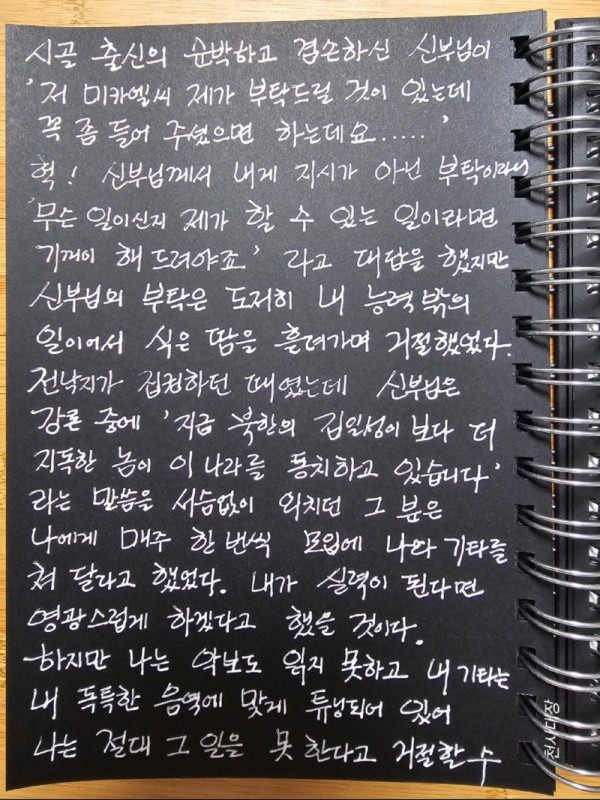 시골 출신의 순박하고 겸손하신 신부님이
'저 미카엘씨 제가 부탁드릴 것이 있는데
꼭 좀 들어 주셨으면 하는데요......'
헉! 신부님께서 내게 지시가 아닌 부탁이라니
'무슨 일이신지 제가 할 수 있는 일이라면
기꺼이 해 드려야죠' 라고 대답을 했지만
신부님의 부탁은 도저히 내 능력 밖의
일이어서 식은 땀을 흘려가며 거절했었다.
전낙지가 집권하던 때였는데 신부님은
강론 중에 '지금 북한의 김일성이 보다 더
지독한 놈이 이 나라를 통치하고 있습니다'
라는 말씀을 서슴없이 외치던 그 분은
나에게 매주 한 번씩 모임에 나와 기타를
쳐 달라고 했었다. 내가 실력이 된다면
영광스럽게 하겠다고 했을 것이다.
하지만 나는 악보도 읽지 못하고 내 기타는
내 독특한 음역에 맞게 튜닝되어 있어
나는 절대 그 일을 못 한다고 거절할 수
천사대장